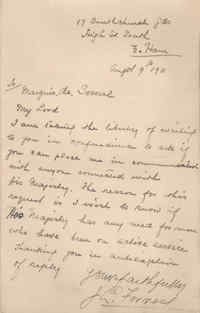 17
High St South
E. Ham
Augst 9th 191
To Marquis de Soveral
My Lord
I am taking the liberty of writing
to you in confidence to ask if
you can place me in communication
with anyone connected with
His Majesty. The reason for this
request is I wish to know if
His Majesty has any need for men
who have been on active service
thanking you in anticipation
of reply
Yours faithfully
J.